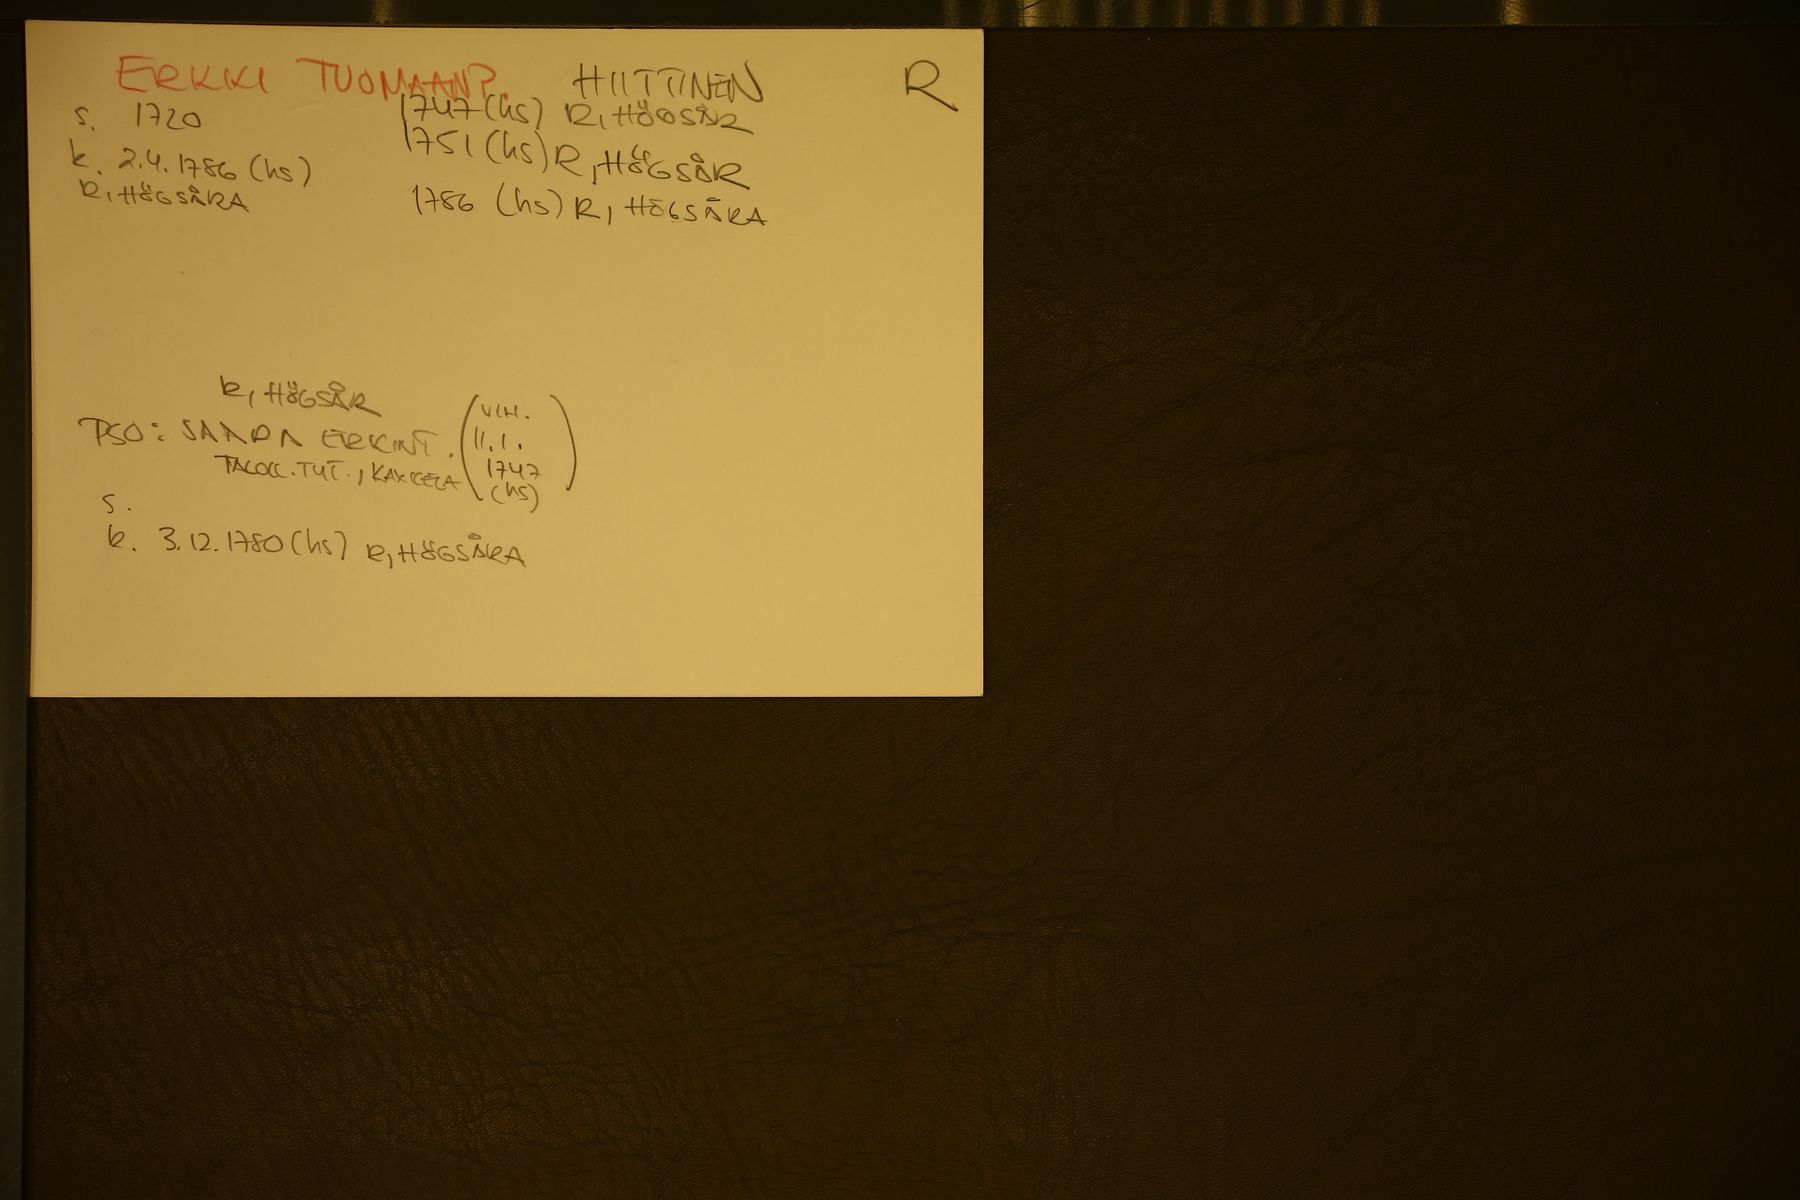 ERKKI TUOMAANP. HIITTINEN R
s. 1720
k. 2.4.1786 (hs)
R, HÖGSÅRA
1747 (hs) R, HÖGSÅR
1751 (hs) R, HÖGSÅR
1786 (hs) R, HÖGSÅRA
R, HÖGSÅR
PSO: SAARA ERKINT. (VIH. 11.1. 1747 (hs))
TALOLL. TYT.,
s.
k. 3.12.1780 (hs) R, HÖGSÅRA